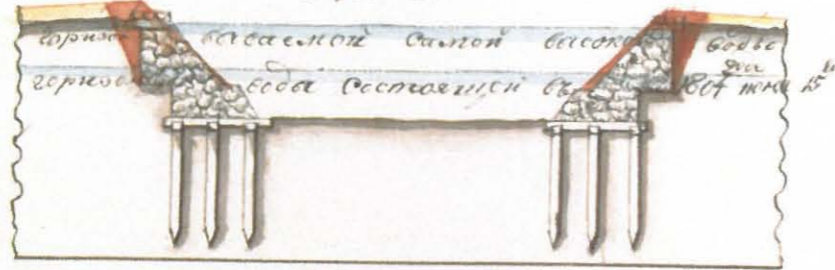 горизо бываемой самой высоко воды
горизо воды состоящей въ июня 15